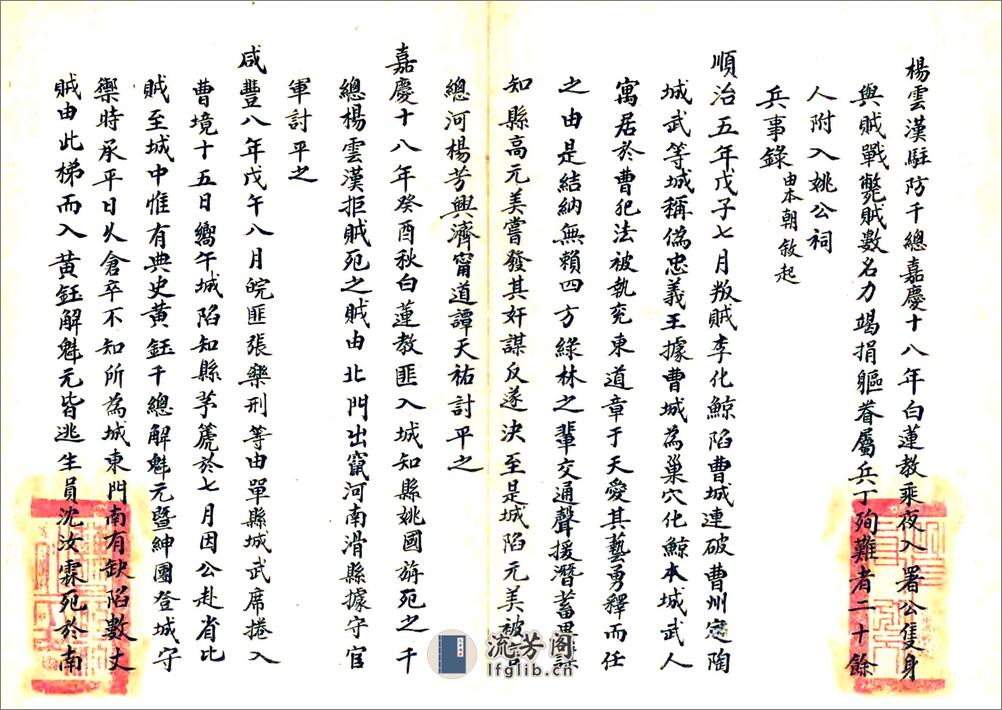 楊雲漢駐防千總嘉慶十八年白蓮教乘夜入署公隻身
與賊戰斃賊數名力竭捐軀眷屬兵丁殉難者二十餘
人附入姚公祠
兵事錄由本朝敘起
順治五年戊子七月叛賊李化鯨陷曹城連破曹州定陶
城武等城稱偽忠義王據曹城為巢穴化鯨本城武人
寓居於曹犯法被執兗東道章于天愛其藝勇釋而任
之由是結納無賴四方綠林之輩交通聲援潛蓄
知縣高元美嘗發其奸謀反遂決至是城陷元美被
總河楊芳興濟甯道譚天祐討平之
嘉慶十八年癸酉秋白蓮教匪入城知縣姚國旃死之千
總楊雲漢拒賊死之賊由北門出竄河南滑縣據守官
軍討平之
咸豐八年戊午八月皖匪張樂刑等由單縣城武席捲入
曹境十五日嚮午城陷知縣茅篪於七月因公赴省比
賊至城中惟有典史黃鈺千總解魁元暨紳團登城守
禦時承平日久倉卒不知所為城東門南有缺陷數丈
賊由此梯而入黃鈺解魁元皆逃生員沈汝霖死於南
流芳阁
lfglib.cn